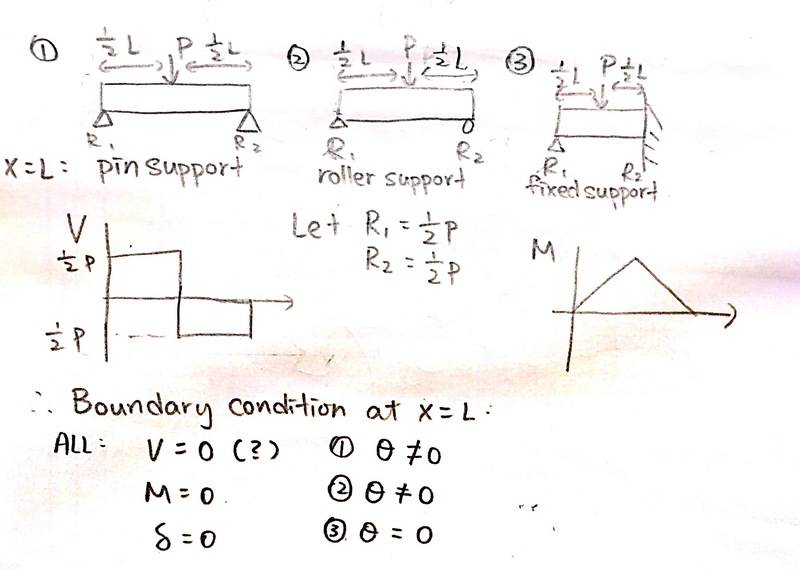 ① ½L P ½L ② ½L P ½L ③ ½L P ½L
R₁ R₂ R₁ R₂ R₁ R₂
X=L: pin support roller support fixed support
V Let R₁ = ½P M
½P R₂ = ½P
½P
∴ Boundary condition at x=L.
ALL: V = 0 (?) ① θ ≠ 0
M = 0 ② θ ≠ 0
δ = 0 ③ θ = 0